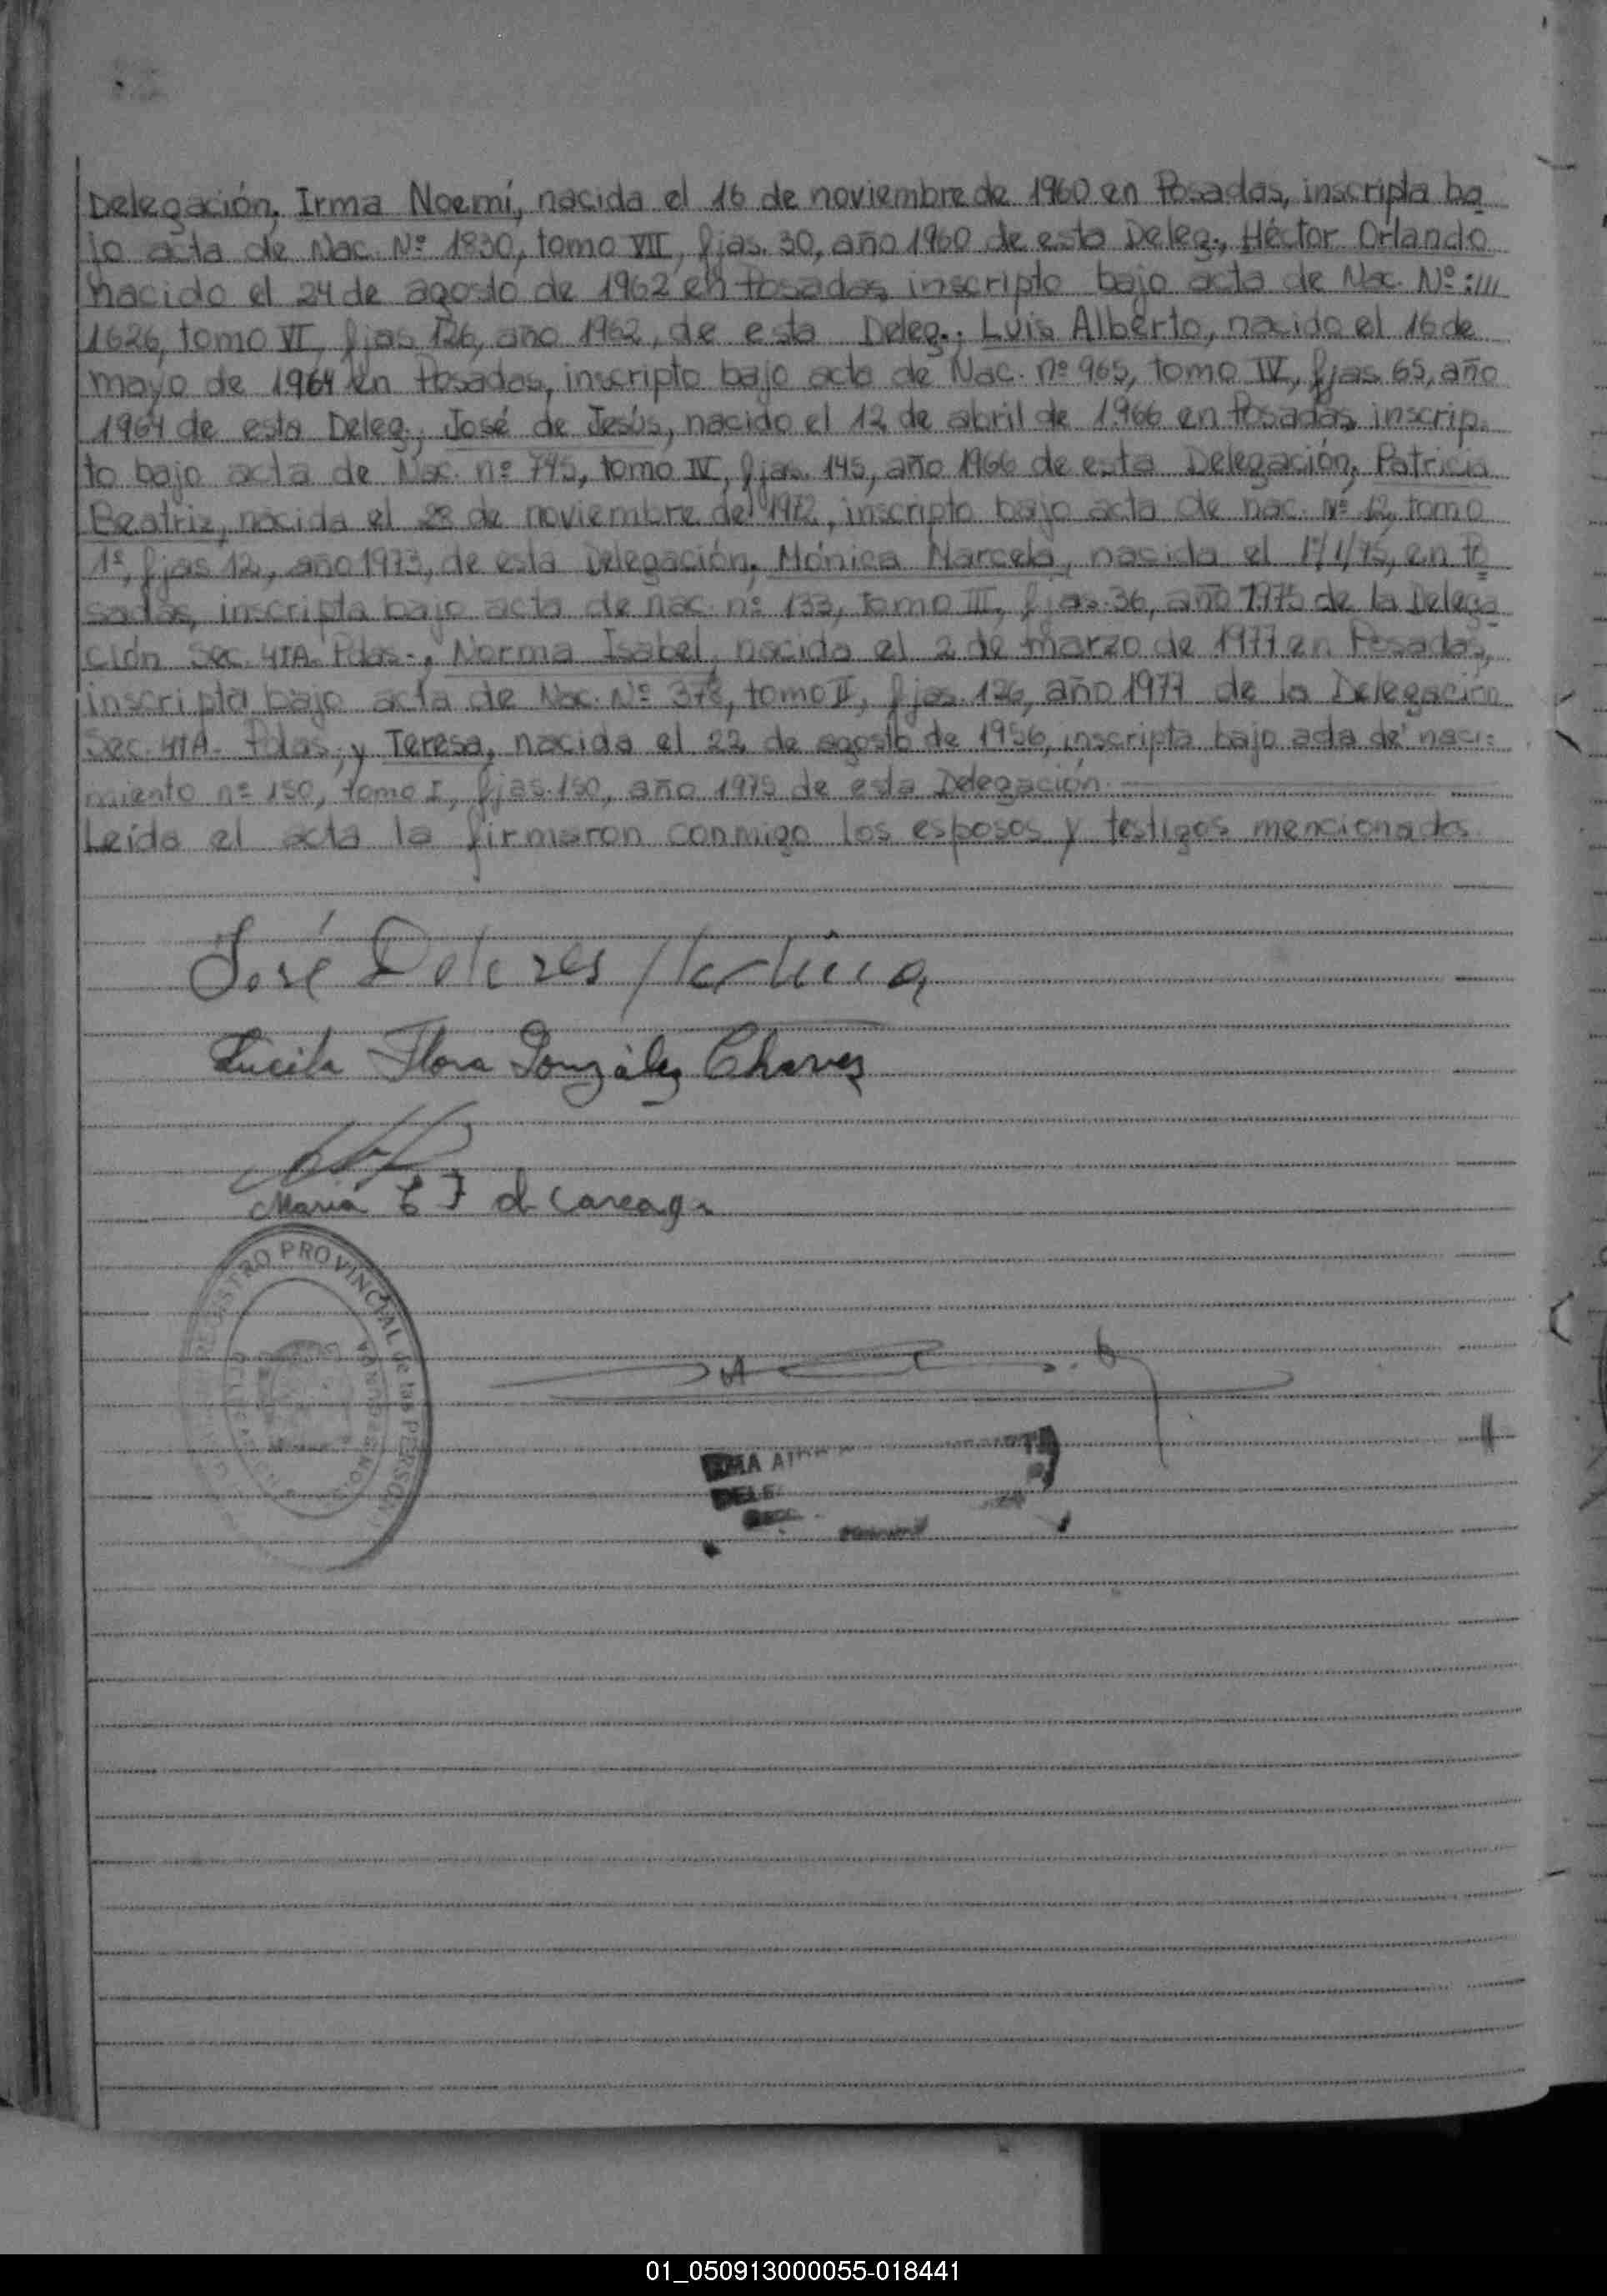 Delegación, Irma Noemí, nacida el 16 de noviembre de 1960 en Posadas, inscripta ba
jo acta de Nac. Nº 1830, tomo VII, fjas. 30, año 1960 de esta Deleg., Héctor Orlando
nacido el 24 de agosto de 1962 en Posadas inscripto bajo acta de Nac. Nº:////
1626, tomo VI, fjas 126, año 1962, de esta Deleg.; Luis Alberto, nacido el 16 de
mayo de 1964 en Posadas, inscripto bajo acta de Nac. nº 965, tomo IV, fjas 65, año
1964 de esta Deleg., José de Jesús, nacido el 12 de abril de 1.966 en Posadas, inscrip-
to bajo acta de Nac. nº 745, tomo IV, fjas. 145, año 1966 de esta Delegación, Patricia
Beatriz, nacida el 23 de noviembre del 1972, inscripto bajo acta de nac. Nº 12, tomo
1º, fjas 12, año 1973, de esta Delegación, Mónica Marcela, nasida el 1º/1/75, en Po
sadas, inscripta bajo acta de nac. nº 133, tomo III, fjas. 36, año 1975 de la Delega
ción Sec. 4TA. Pdas-, Norma Isabel, nacida el 2 de marzo de 1977 en Posadas,
inscripta bajo acta de Nac. Nº 378, tomo II, fjas. 126, año 1977 de la Delegación
Sec. 4TA. Pdas, y Teresa, nacida el 22 de agosto de 1956, inscripta bajo acta de naci-
miento nº 150, tomo I, fjas. 150, año 1975 de esta Delegación.
Leída el acta la firmaron conmigo los esposos y testigos mencionados
José Dolores
Lucila Flora González Chaves
María E F d Careaga
REGISTRO PROVINCIAL de las PERSONAS
01_050913000055-018441